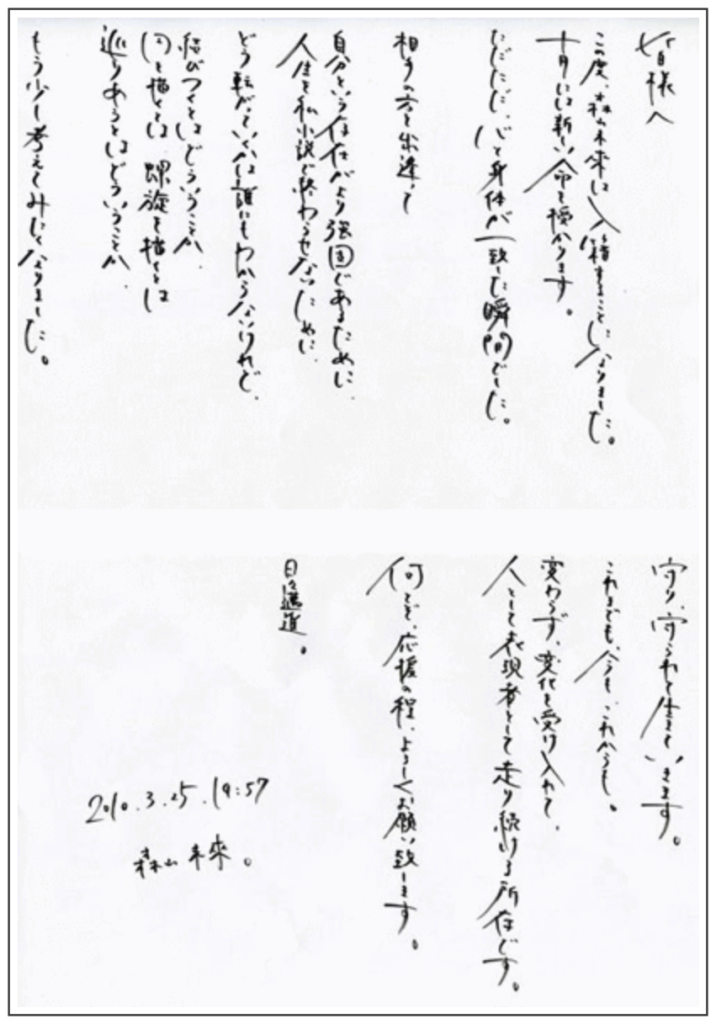 皆様へ
この度、森山未來は入籍することになりました。
十月には新しい命を授かります。
ただただ、心と身体が一致した瞬間でした。
相手の方と出逢って
自分という存在がより強固であるために、
人生を私小説で終わらせないために、
どう転がっていくかは誰にもわからないけれど、
結びつくとはどういうことか、
円を描くとは 螺旋を描くとは
巡りあうとはどういうことか、
もう少し考えてみたくなりました。
守り、守られて生きていきます。
これまでも、今も、これからも。
変わらず、変化を受け入れて、
人として表現者として走り続ける所存です。
何とぞ、応援の程、よろしくお願い致します。
日々邁進。
2010.3.25.19:57
森山未來。